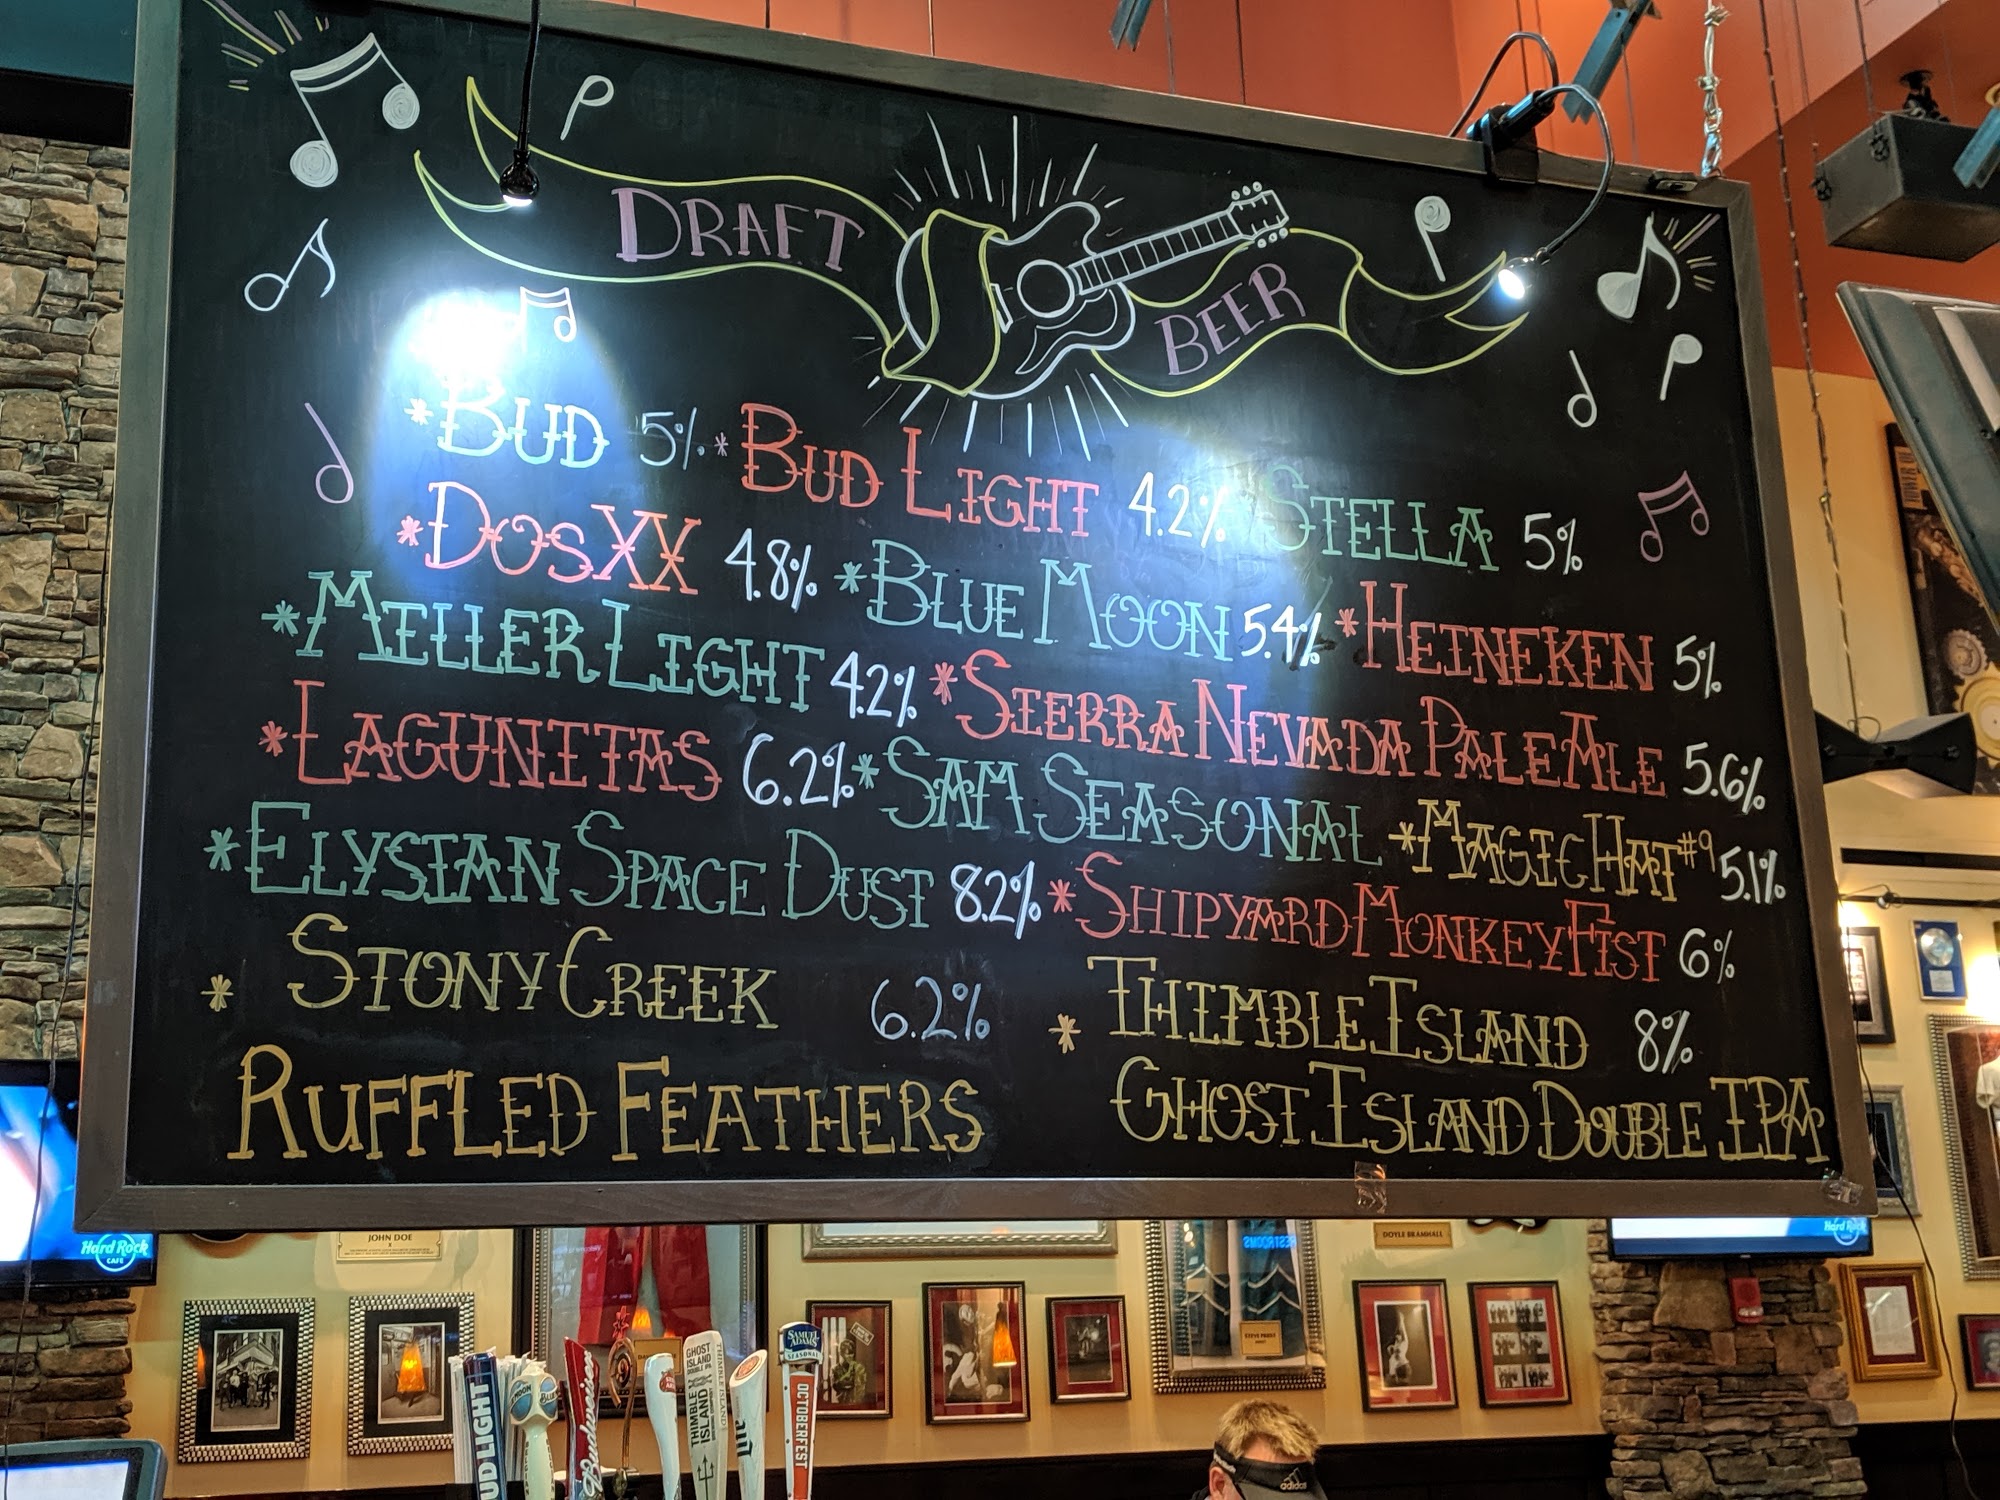 DRAFT BEER
*BUD 5% *BUD LIGHT 4.2% STELLA 5%
*DOS XX 4.8% *BLUE MOON 5.4% *HEINEKEN 5%
*MILLER LIGHT 4.2% *SIERRA NEVADA PALE ALE 5.6%
*LAGUNITAS 6.2% *SAM SEASONAL *MAGIC HAT #9 5.1%
*ELYSIAN SPACE DUST 8.2% *SHIPYARD MONKEY FIST 6%
* STONY CREEK 6.2% * THIMBLE ISLAND 8%
RUFFLED FEATHERS GHOST ISLAND DOUBLE IPA
Hard Rock
CAFE
JOHN DOE
RESTROOMS
DOYLE BRAMHALL
Hard Rock
CAFE
BUD LIGHT
MOON
Budweiser
GHOST
ISLAND
DOUBLE IPA
THIMBLE
ISLAND
THIMBLE ISLAND
Lite
SAMUEL
ADAMS
SEASONAL
OCTOBERFEST
adidas